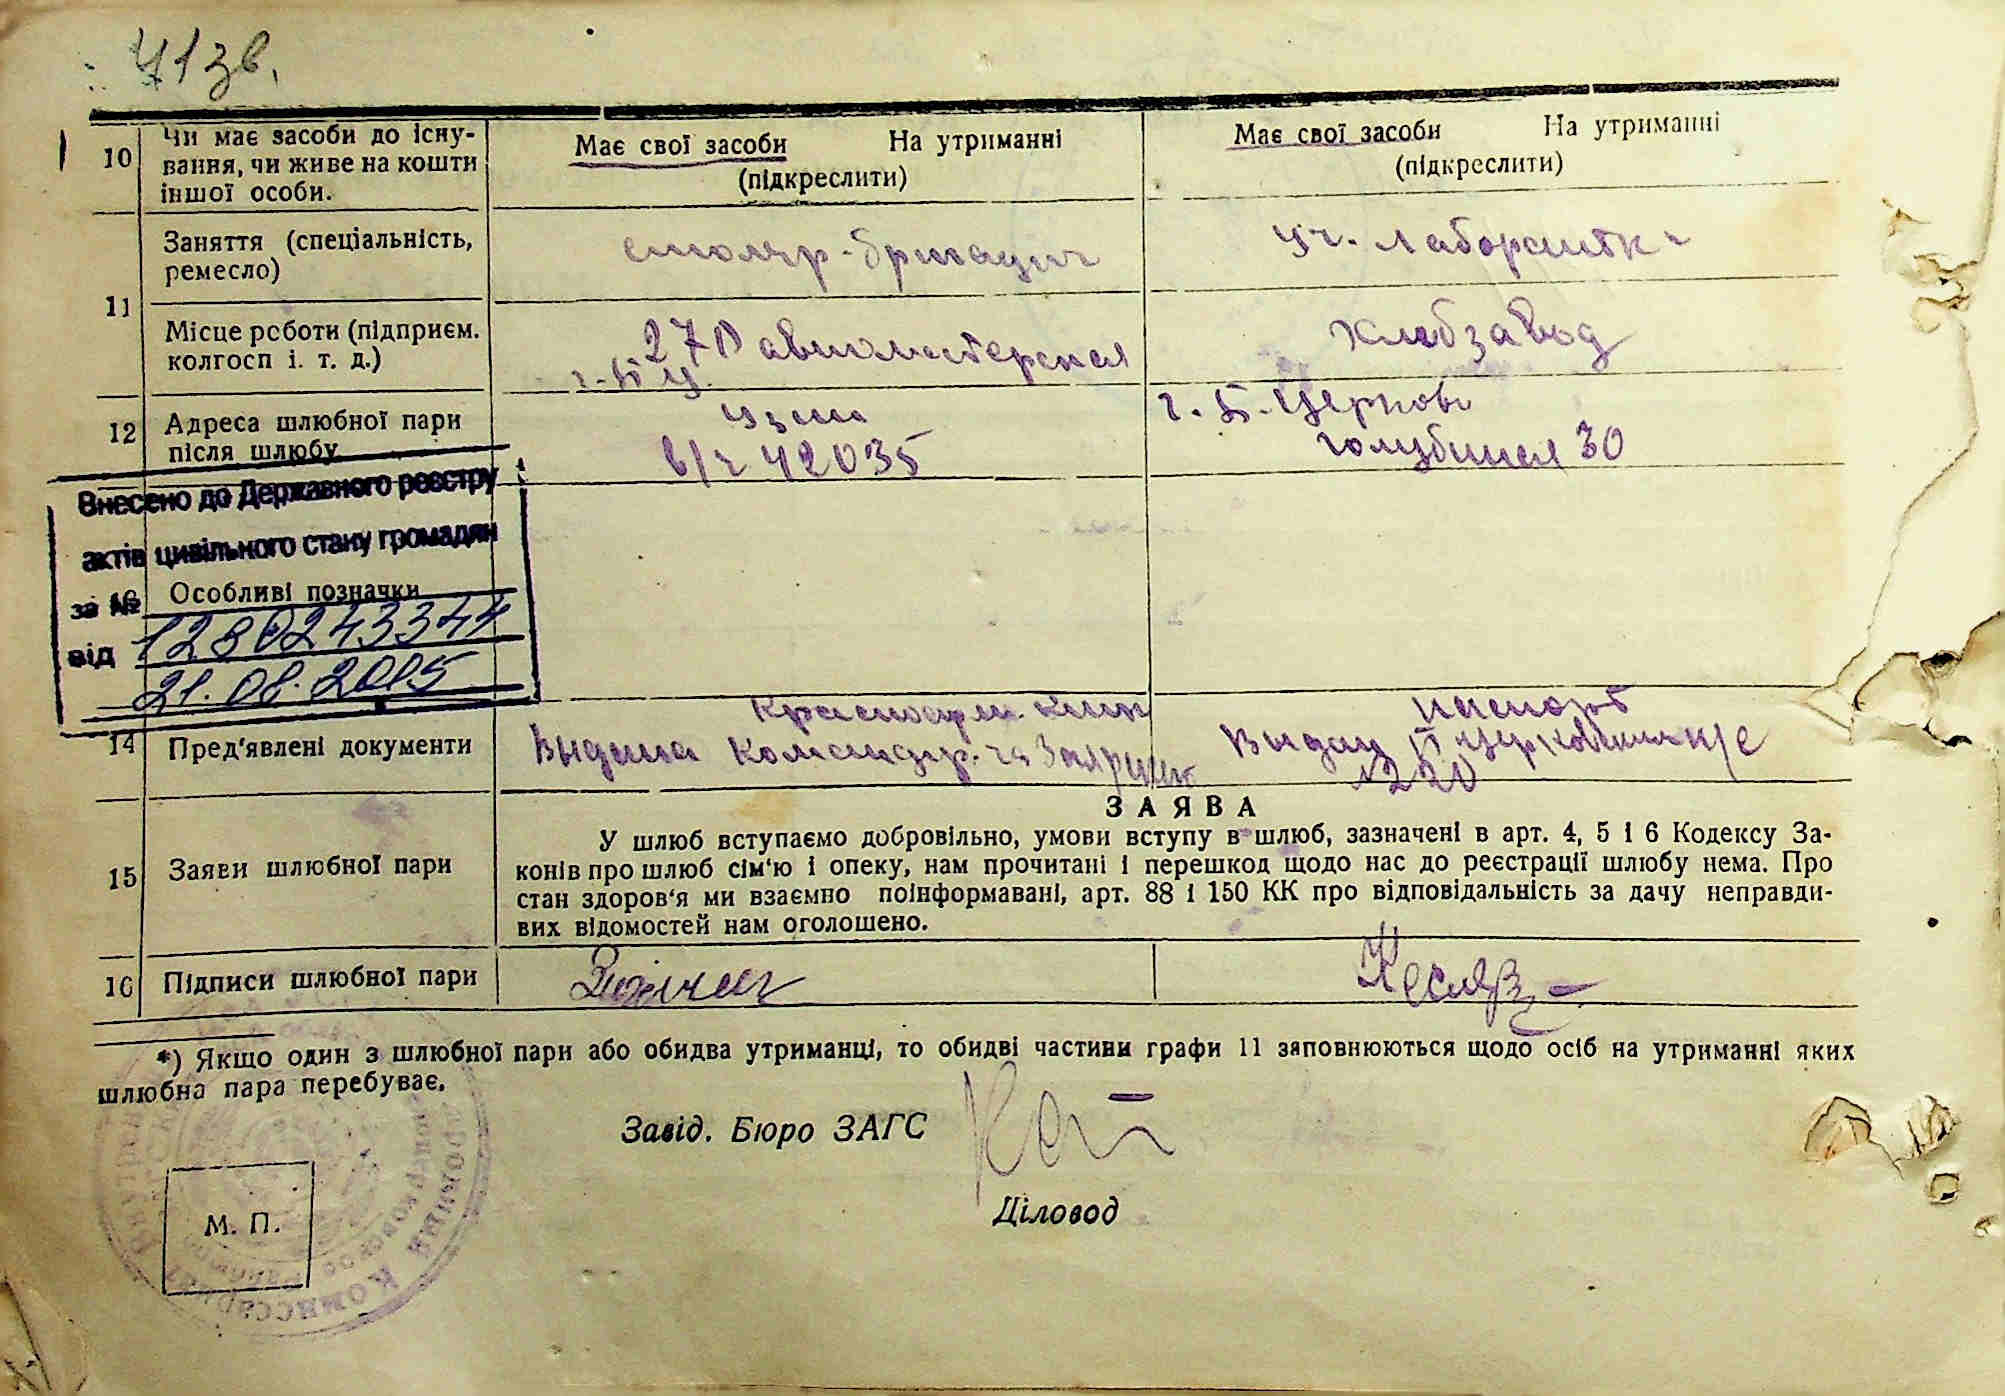 71 зв.
10
Чи має засоби до існу-
вання, чи живе на кошти
іншої особи.
Має свої засоби На утриманні
(підкреслити)
Має свої засоби На утриманні
(підкреслити)
11
Заняття (спеціальність,
ремесло)
столяр-бригадир
уч. лаборантка
Місце роботи (підприєм.
колгосп і. т. д.)
270 авиомастерская
г. Б Ц.
Хлебзавод
12
Адреса шлюбної пари
після шлюбу
в/ч 42035
г. Б. Церковь
голубиная 30
Внесено до Державного реєстру
актів цивільного стану громадян
за №
1280243344
від
21.08.2015
Особливі позначки
14
Пред'явлені документи
Красноарм. книж
Выдана командир. ча
паспорт
Выдан Б Церковским
№220
15
Заяви шлюбної пари
ЗАЯВА
У шлюб вступаємо добровільно, умови вступу в шлюб, зазначені в арт. 4, 5 і 6 Кодексу За-
конів про шлюб сім'ю і опеку, нам прочитані і перешкод щодо нас до реєстрації шлюбу нема. Про
стан здоров'я ми взаємно поінформавані, арт. 88 і 150 КК про відповідальність за дачу неправди-
вих відомостей нам оголошено.
16
Підписи шлюбної пари
*) Якщо один з шлюбної пари або обидва утриманці, то обидві частини графи 11 заповнюються щодо осіб на утриманні яких
шлюбна пара перебуває.
Завід. Бюро ЗАГС
Діловод
М. П.